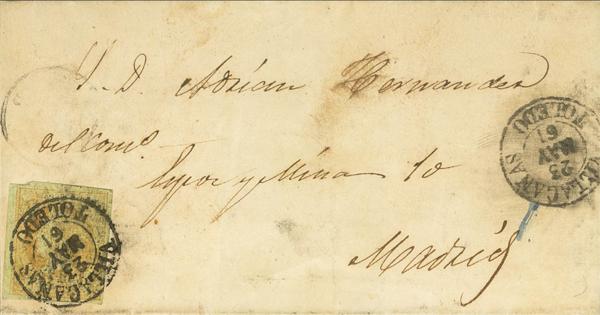 S. D. Adrian Hernandez
del Como.
Espoz y Mina 10
Madrid
VILLACAÑAS
TOLEDO
23
MAY
61
VILLACAÑAS
TOLEDO
23
MAY
61